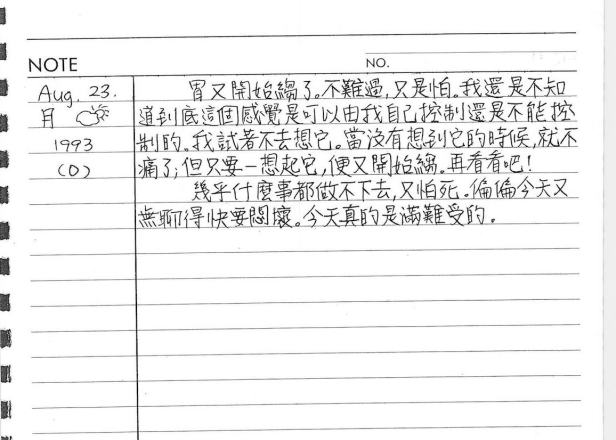 NOTE
NO.
Aug. 23.
月
1993
(0)
胃又開始縐了。不難過，只是怕。我還是不知
道到底這個感覺是可以由我自己控制還是不能控
制的。我試著不去想它。當沒有想到它的時候，就不
痛了；但只要一想起它，便又開始縐。再看看吧！
幾乎什麼事都做不下去，又怕死。偏偏今天又
無聊得快要悶壞。今天真的是滿難受的。